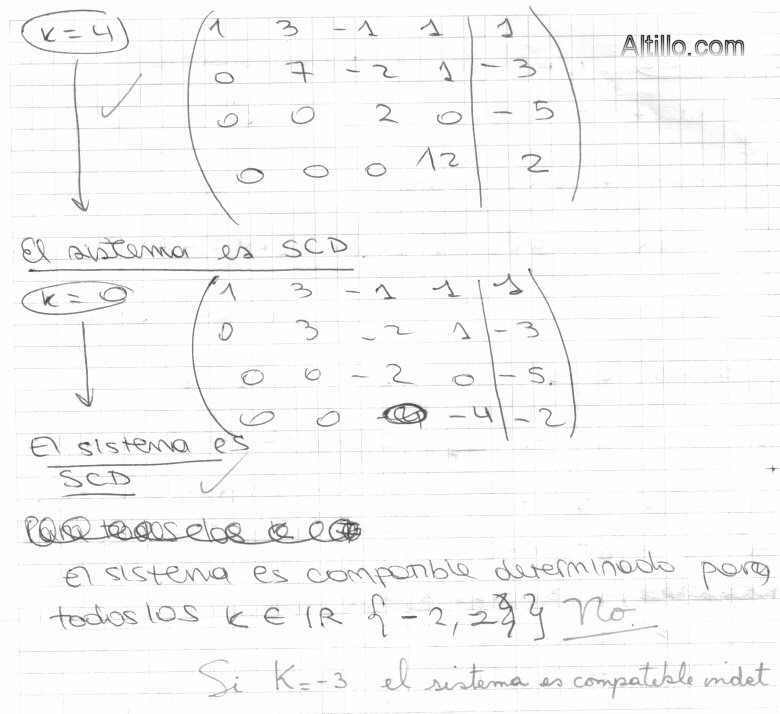 k = 4
1 3 -1 1 | 1
Altillo.com
0 7 -2 1 | -3
0 0 2 0 | -5
0 0 0 12 | 2
El sistema es SCD.
k = 0
1 3 -1 1 | 1
0 3 -2 1 | -3
0 0 -2 0 | -5.
0 0 -4 | -2
El sistema es
SCD
El sistema es compatible determinado para
todos los K ∈ IR { -2, 2} } No.
Si K = -3 el sistema es compatible indet